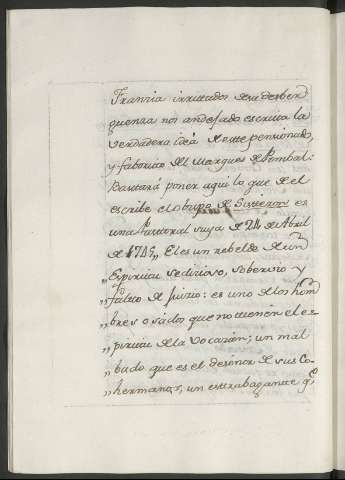 Francia irritados de su desber
guenza nos an defado escrita la
verdadera idea de este pensionado,
y faborito del Marques de Pombal:
Bastará poner aqui lo que de el
escribe el obispo de Sisteron en
una Pastoral suya de 24 de Abril
de 1745,, El es un rebelde de un
,, Espiritu sedicioso, sobervio y
,, falto de juicio: es uno de los hom
,, bres osados que no tienen el es
,, piritu de la vocacion; un mal
,, bado que es el desonor de sus Co-
,, hermanos, un extrabagante q.e